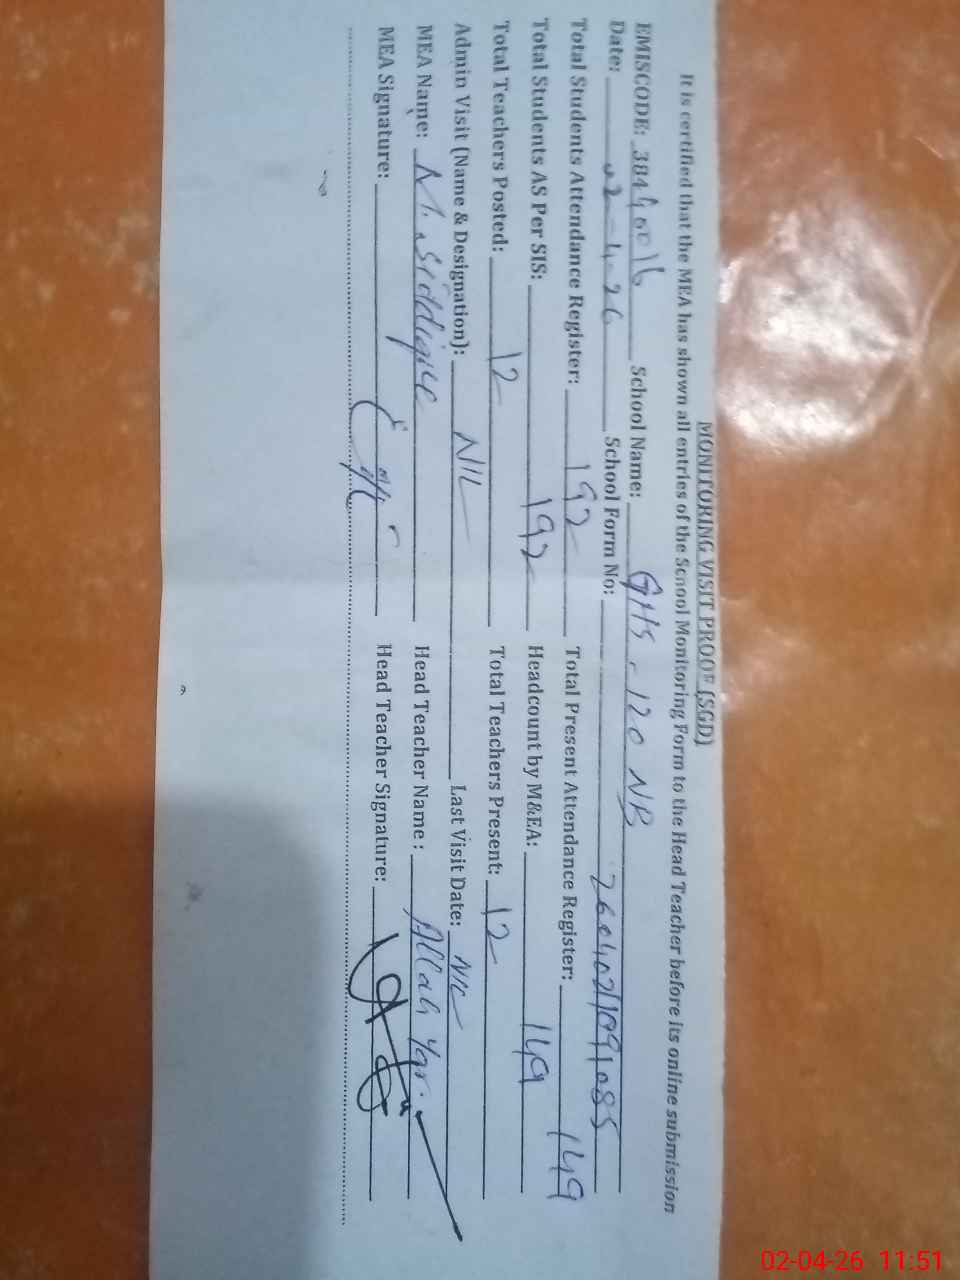 MONITORING VISIT PROOF (SGD)
It is certified that the MEA has shown all entries of the School Monitoring Form to the Head Teacher before its online submission
EMISCODE: 38440016 School Name: GHS - 120 NB
Date: 02-4-26 School Form No: 2604021091085
Total Students Attendance Register: 192 Total Present Attendance Register: 149
Total Students AS Per SIS: 192 Headcount by M&EA: 149
Total Teachers Posted: 12 Total Teachers Present: 12
Admin Visit (Name & Designation): NIL Last Visit Date: NIL
MEA Name: M. Siddique Head Teacher Name : Allah Yar
MEA Signature: Head Teacher Signature:
02-04-26 11:51